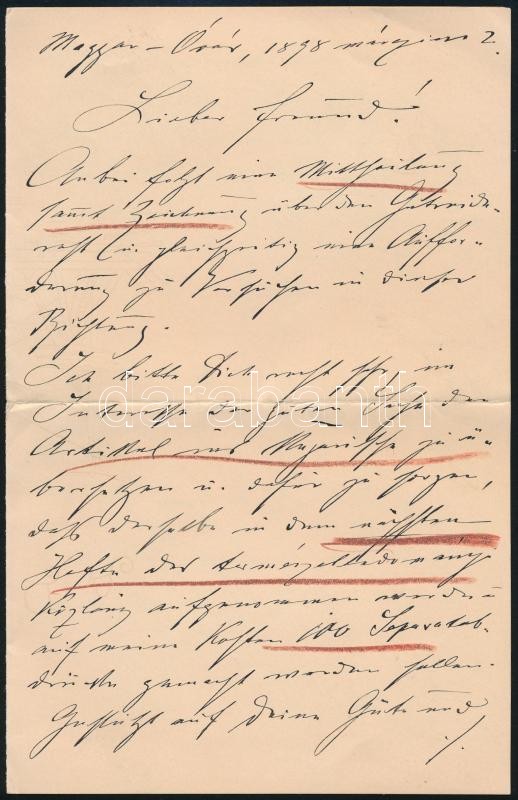 Magyar-Óvár, 1898 márczius 2.
Lieber Freund!
Anbei folgt eine Mittheilung
sammt Zeichnung über den Getreide-
rost u. gleichzeitig eine Auffor-
derung zu Versuchen in dieser
Richtung.
Ich bitte Dich recht sehr, im
Interesse der guten Sache den
Artikel ins Ungarische zu ü-
bersetzen u. dafür zu sorgen,
daß derselbe in dem nächsten
Hefte des természettudományi
Közlöny aufgenommen werde u
auf meine Kosten 100 Separatab-
drücke gemacht werden sollen.
Gestützt auf Deine Güte und
./.
darabanth